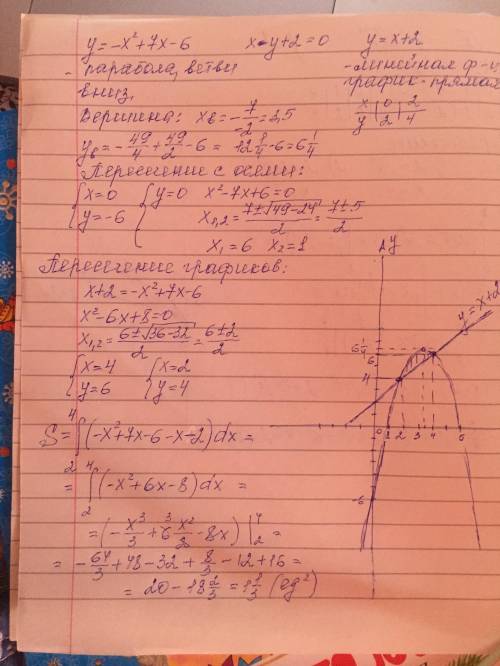 y=-x²+7x-6    x-y+2=0    y=x+2
- парабола, ветви    - линейная ф-ц
вниз,    график - прямая
Вершина: xв=-7/-2=3,5    x | 0 | 2
y | 2 | 4
yв=-49/4+49/2-6=12 1/4-6=6 1/4
Пересечение с осями:
{x=0    {y=0    x²-7x+6=0
y=-6    x1,2=(7±√49-24)/2=(7±5)/2
x1=6    x2=1
Пересечение графиков:
x+2=-x²+7x-6
x²-6x+8=0
x1,2=(6±√36-32)/2=(6±2)/2
{x=4    {x=2
y=6    y=4
S=∫₂⁴(-x²+7x-6-x-2)dx=
=∫₂⁴(-x²+6x-8)dx=
=(-x³/3+6x²/2-8x)|₂⁴=
=-64/3+48-32+8/3-12+16=
=20-18 2/3=1 1/3 (ед²)
y
y=x+2
6 1/4
6
4
0 1 2 4 6
-6